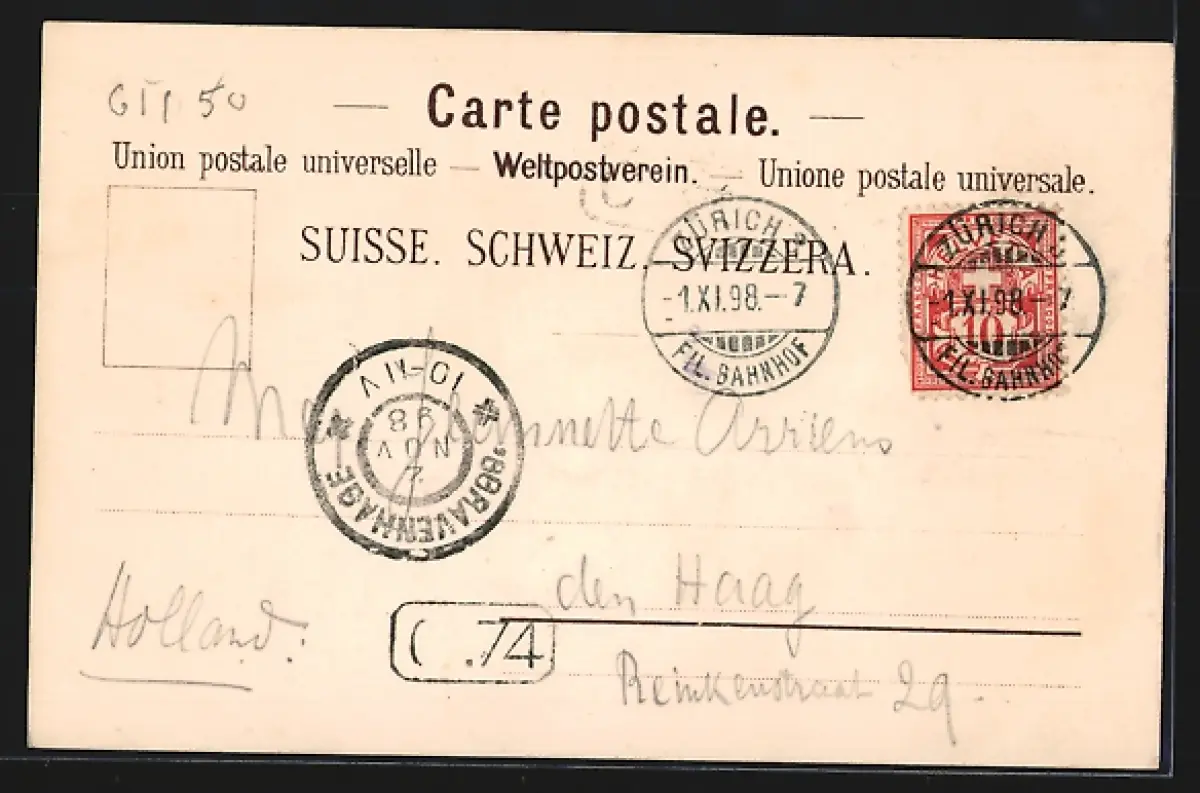 50
— Carte postale. —
Union postale universelle — Weltpostverein. — Unione postale universale.
SUISSE. SCHWEIZ. SVIZZERA.
ZÜRICH
-1.XI.98.-7
FIL. BAHNHOF
ZÜRICH
-1.XI.98.-7
FIL. BAHNHOF
FRANCO
10
'SGRAVENHAGE
10-11 V
2
NOV
98
Arriens
Holland.
den Haag
C.74
Reinkenstraat 29.